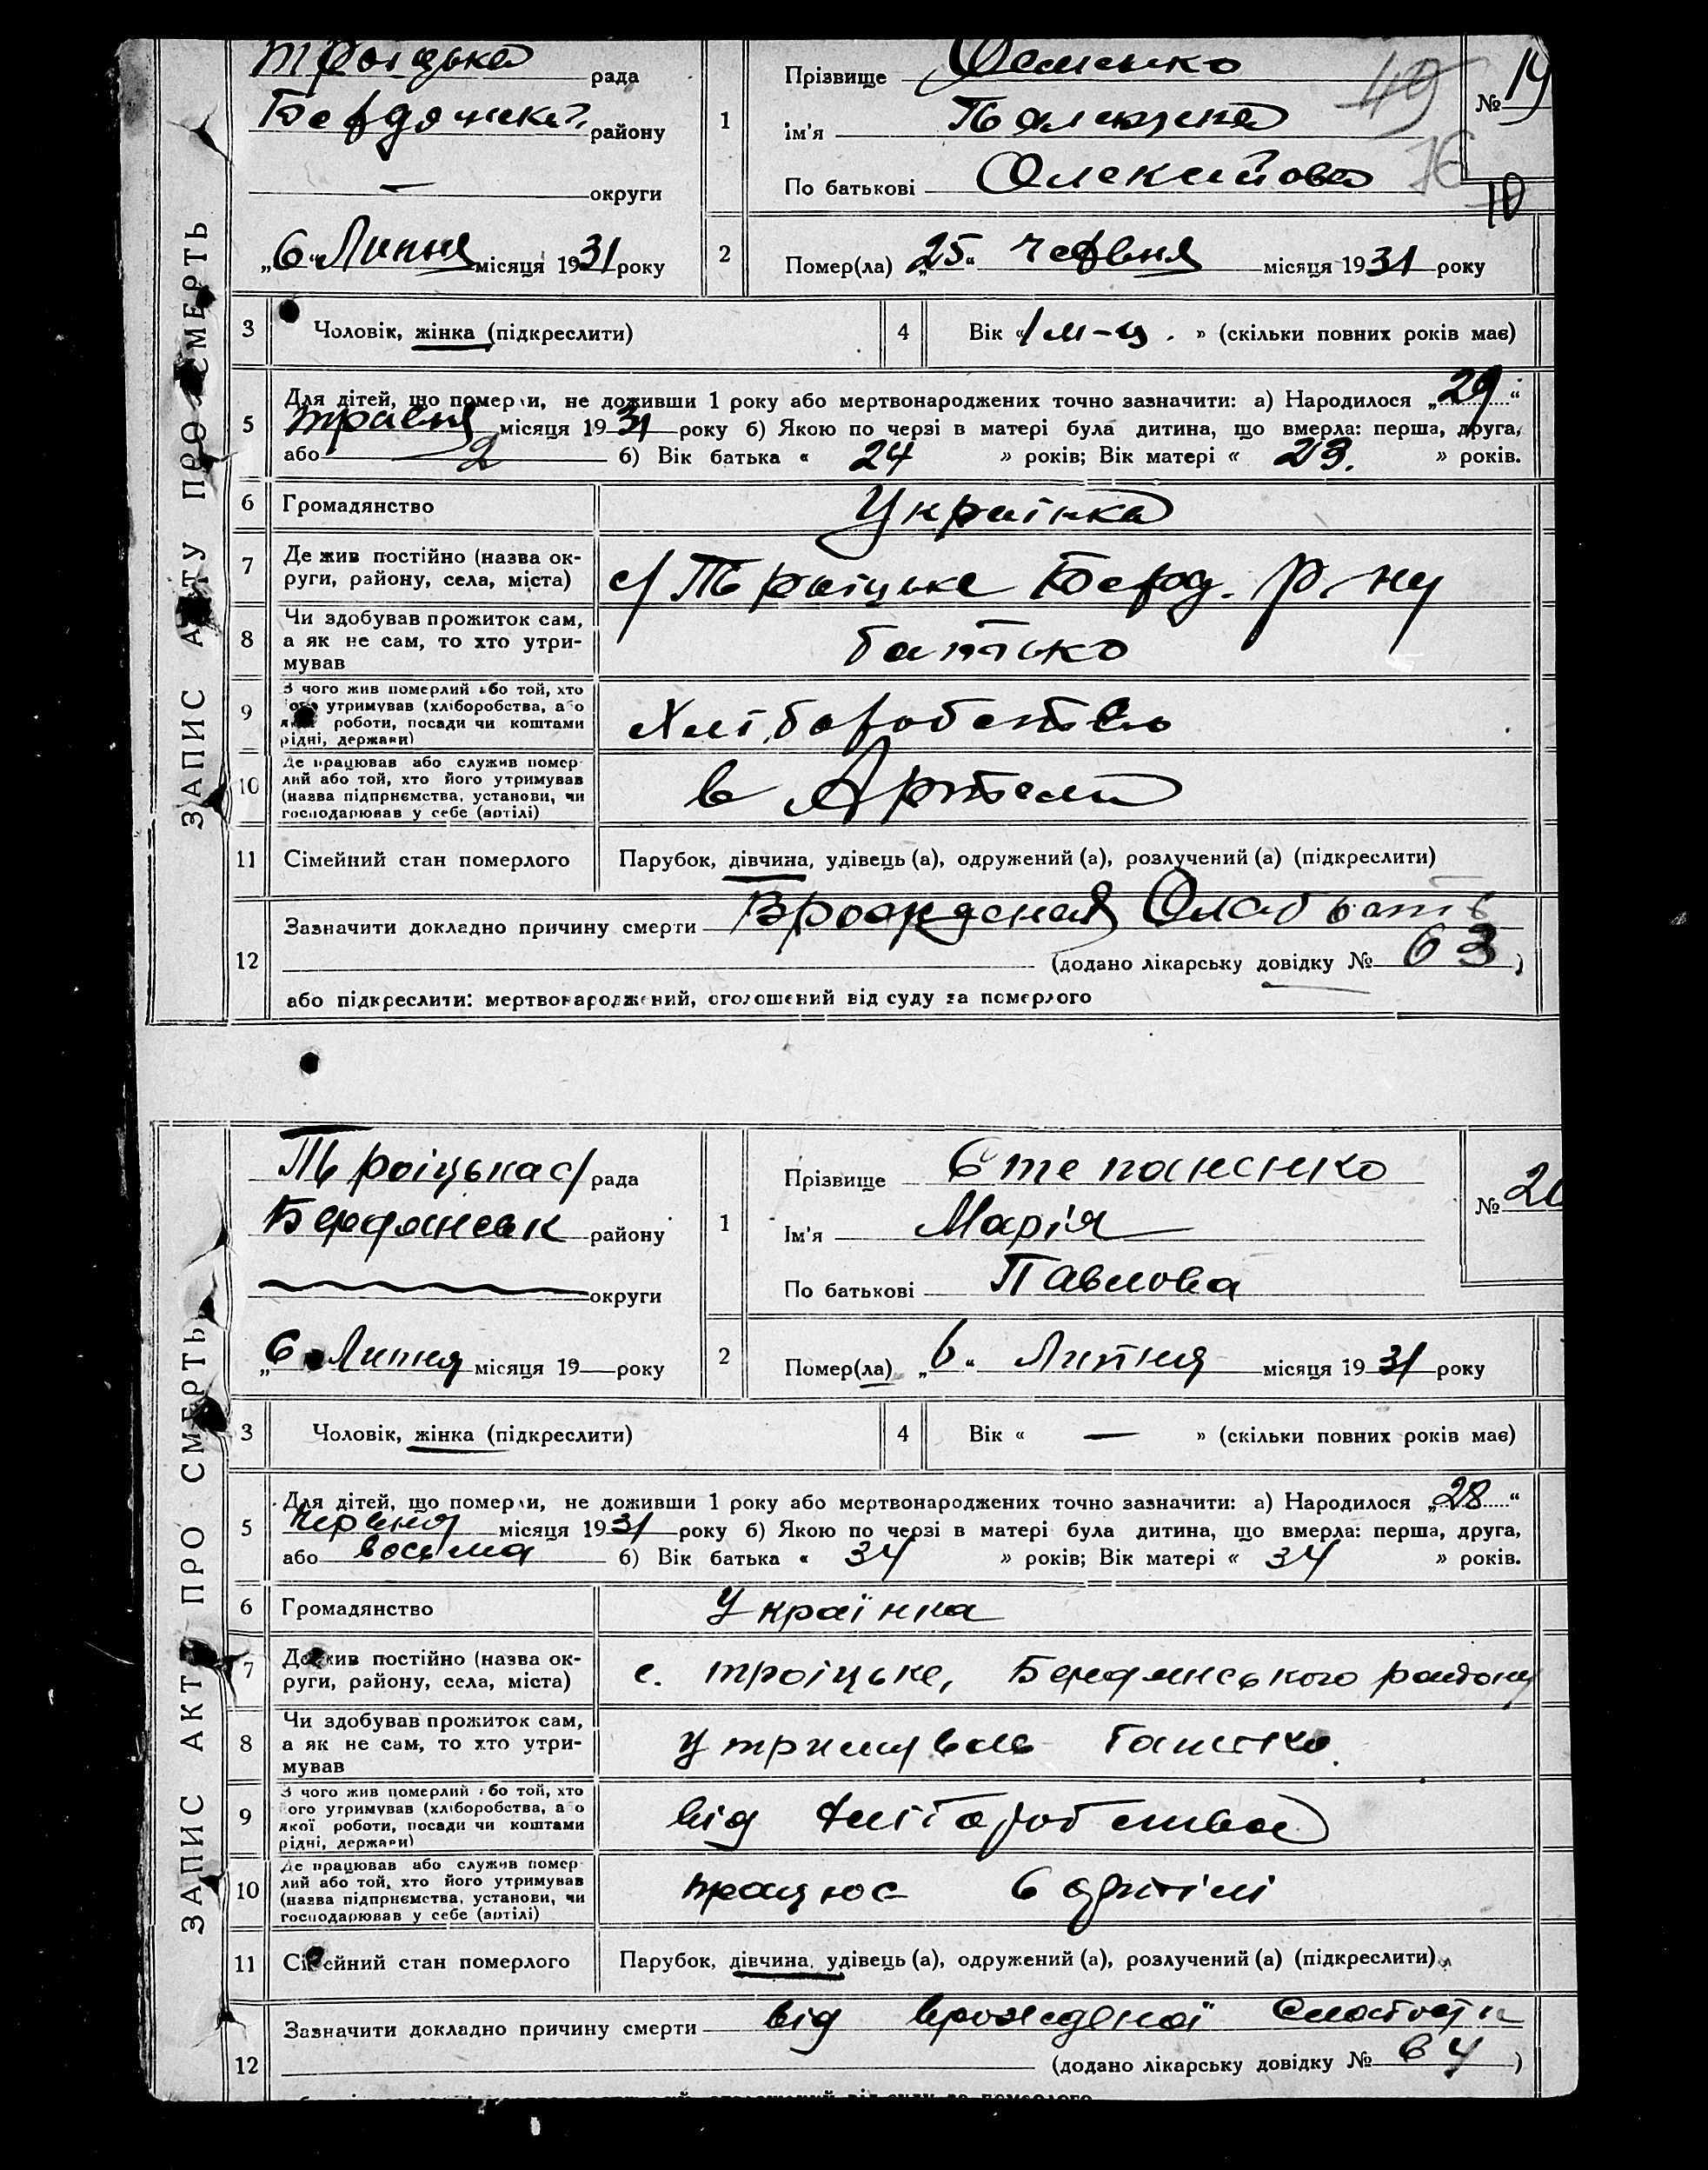 ЗАПИС АКТУ ПРО СМЕРТЬ
Троіцька рада
Бердянськ. району
— округи
„6“ Липня місяця 1931 року
1
Прізвище
Ім'я
По батькові Олексийовна
№ 19
49
10
2
Помер(ла) „25“ червня місяця 1931 року
3 Чоловік, жінка (підкреслити)
4 Вік « 1 м-ц. » (скільки повних років має)
5 Для дітей, що померли, не доживши 1 року або мертвонароджених точно зазначити: а) Народилося „29“
травня місяця 1931 року б) Якою по черзі в матері була дитина, що вмерла: перша, друга,
або 2 б) Вік батька « 24 » років; Вік матері « 23. » років.
6 Громадянство Українка
7 Де жив постійно (назва ок-
руги, району, села, міста) с/ Троіцьке Берд. р-ну
8 Чи здобував прожиток сам,
а як не сам, то хто утри-
мував батько
9 З чого жив померлий або той, хто
його утримував (хліборобства, або
якої роботи, посади чи коштами
рідні, держави) Хліборобство
10 Де працював або служив помер-
лий або той, хто його утримував
(назва підпрнємства, установи, чи
господарював у себе (артілі) в Артели
11 Сімейний стан померлого Парубок, дівчина, удівець (а), одружений (а), розлучений (а) (підкреслити)
12 Зазначити докладно причину смерти Врожденая Слабость
(додано лікарську довідку № 63)
або підкреслити: мертвонароджений, оголошений від суду за померлого
ЗАПИС АКТУ ПРО СМЕРТЬ
Троіцька с/ рада
Бердянськ району
округи
„6“ Липня місяця 19— року
1
Прізвище Степаненко
Ім'я Марія
По батькові Павлова
№ 20
2
Помер(ла) „6“ Липня місяця 1931 року
3 Чоловік, жінка (підкреслити)
4 Вік « — » (скільки повних років має)
5 Для дітей, що померли, не доживши 1 року або мертвонароджених точно зазначити: а) Народилося „28“
червня місяця 1931 року б) Якою по черзі в матері була дитина, що вмерла: перша, друга,
або восьма б) Вік батька « 34 » років; Вік матері « 34 » років.
6 Громадянство Українка
7 Де жив постійно (назва ок-
руги, району, села, міста) с. Троіцьке, Бердянського району
8 Чи здобував прожиток сам,
а як не сам, то хто утри-
мував утримував батько.
9 З чого жив померлий або той, хто
його утримував (хліборобства, або
якої роботи, посади чи коштами
рідні, держави) від хліборобства
10 Де працював або служив помер-
лий або той, хто його утримував
(назва підпрнємства, установи, чи
господарював у себе (артілі) працює в артілі
11 Сімейний стан померлого Парубок, дівчина, удівець (а), одружений (а), розлучений (а) (підкреслити)
12 Зазначити докладно причину смерти від врожденої слабости
(додано лікарську довідку № 64)